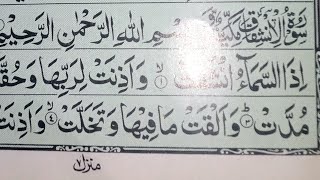 سُوْرَةُ الْاِنْشِقَاقِ مَكِّيَّةٌ بِسْمِ اللهِ الرَّحْمٰنِ الرَّحِيْمِ
اِذَا السَّمَآءُ انْشَقَّتْ ۙ﴿۱﴾ وَاَذِنَتْ لِرَبِّهَا وَحُقَّتْ
مُدَّتْ ۙ﴿۳﴾ وَاَلْقَتْ مَا فِيْهَا وَتَخَلَّتْ ۙ﴿۴﴾ وَاَذِنَتْ
منزل ۷